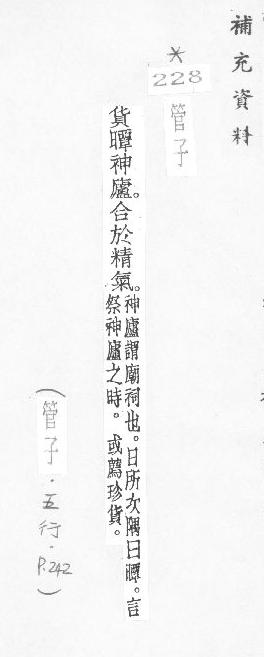 補充資料
*
228
管子
貨曋神廬。合於精氣。
神廬謂廟祠也。日所次隅曰曋。言
祭神廬之時。或薦珍貨。
(管子·五行·P.242)